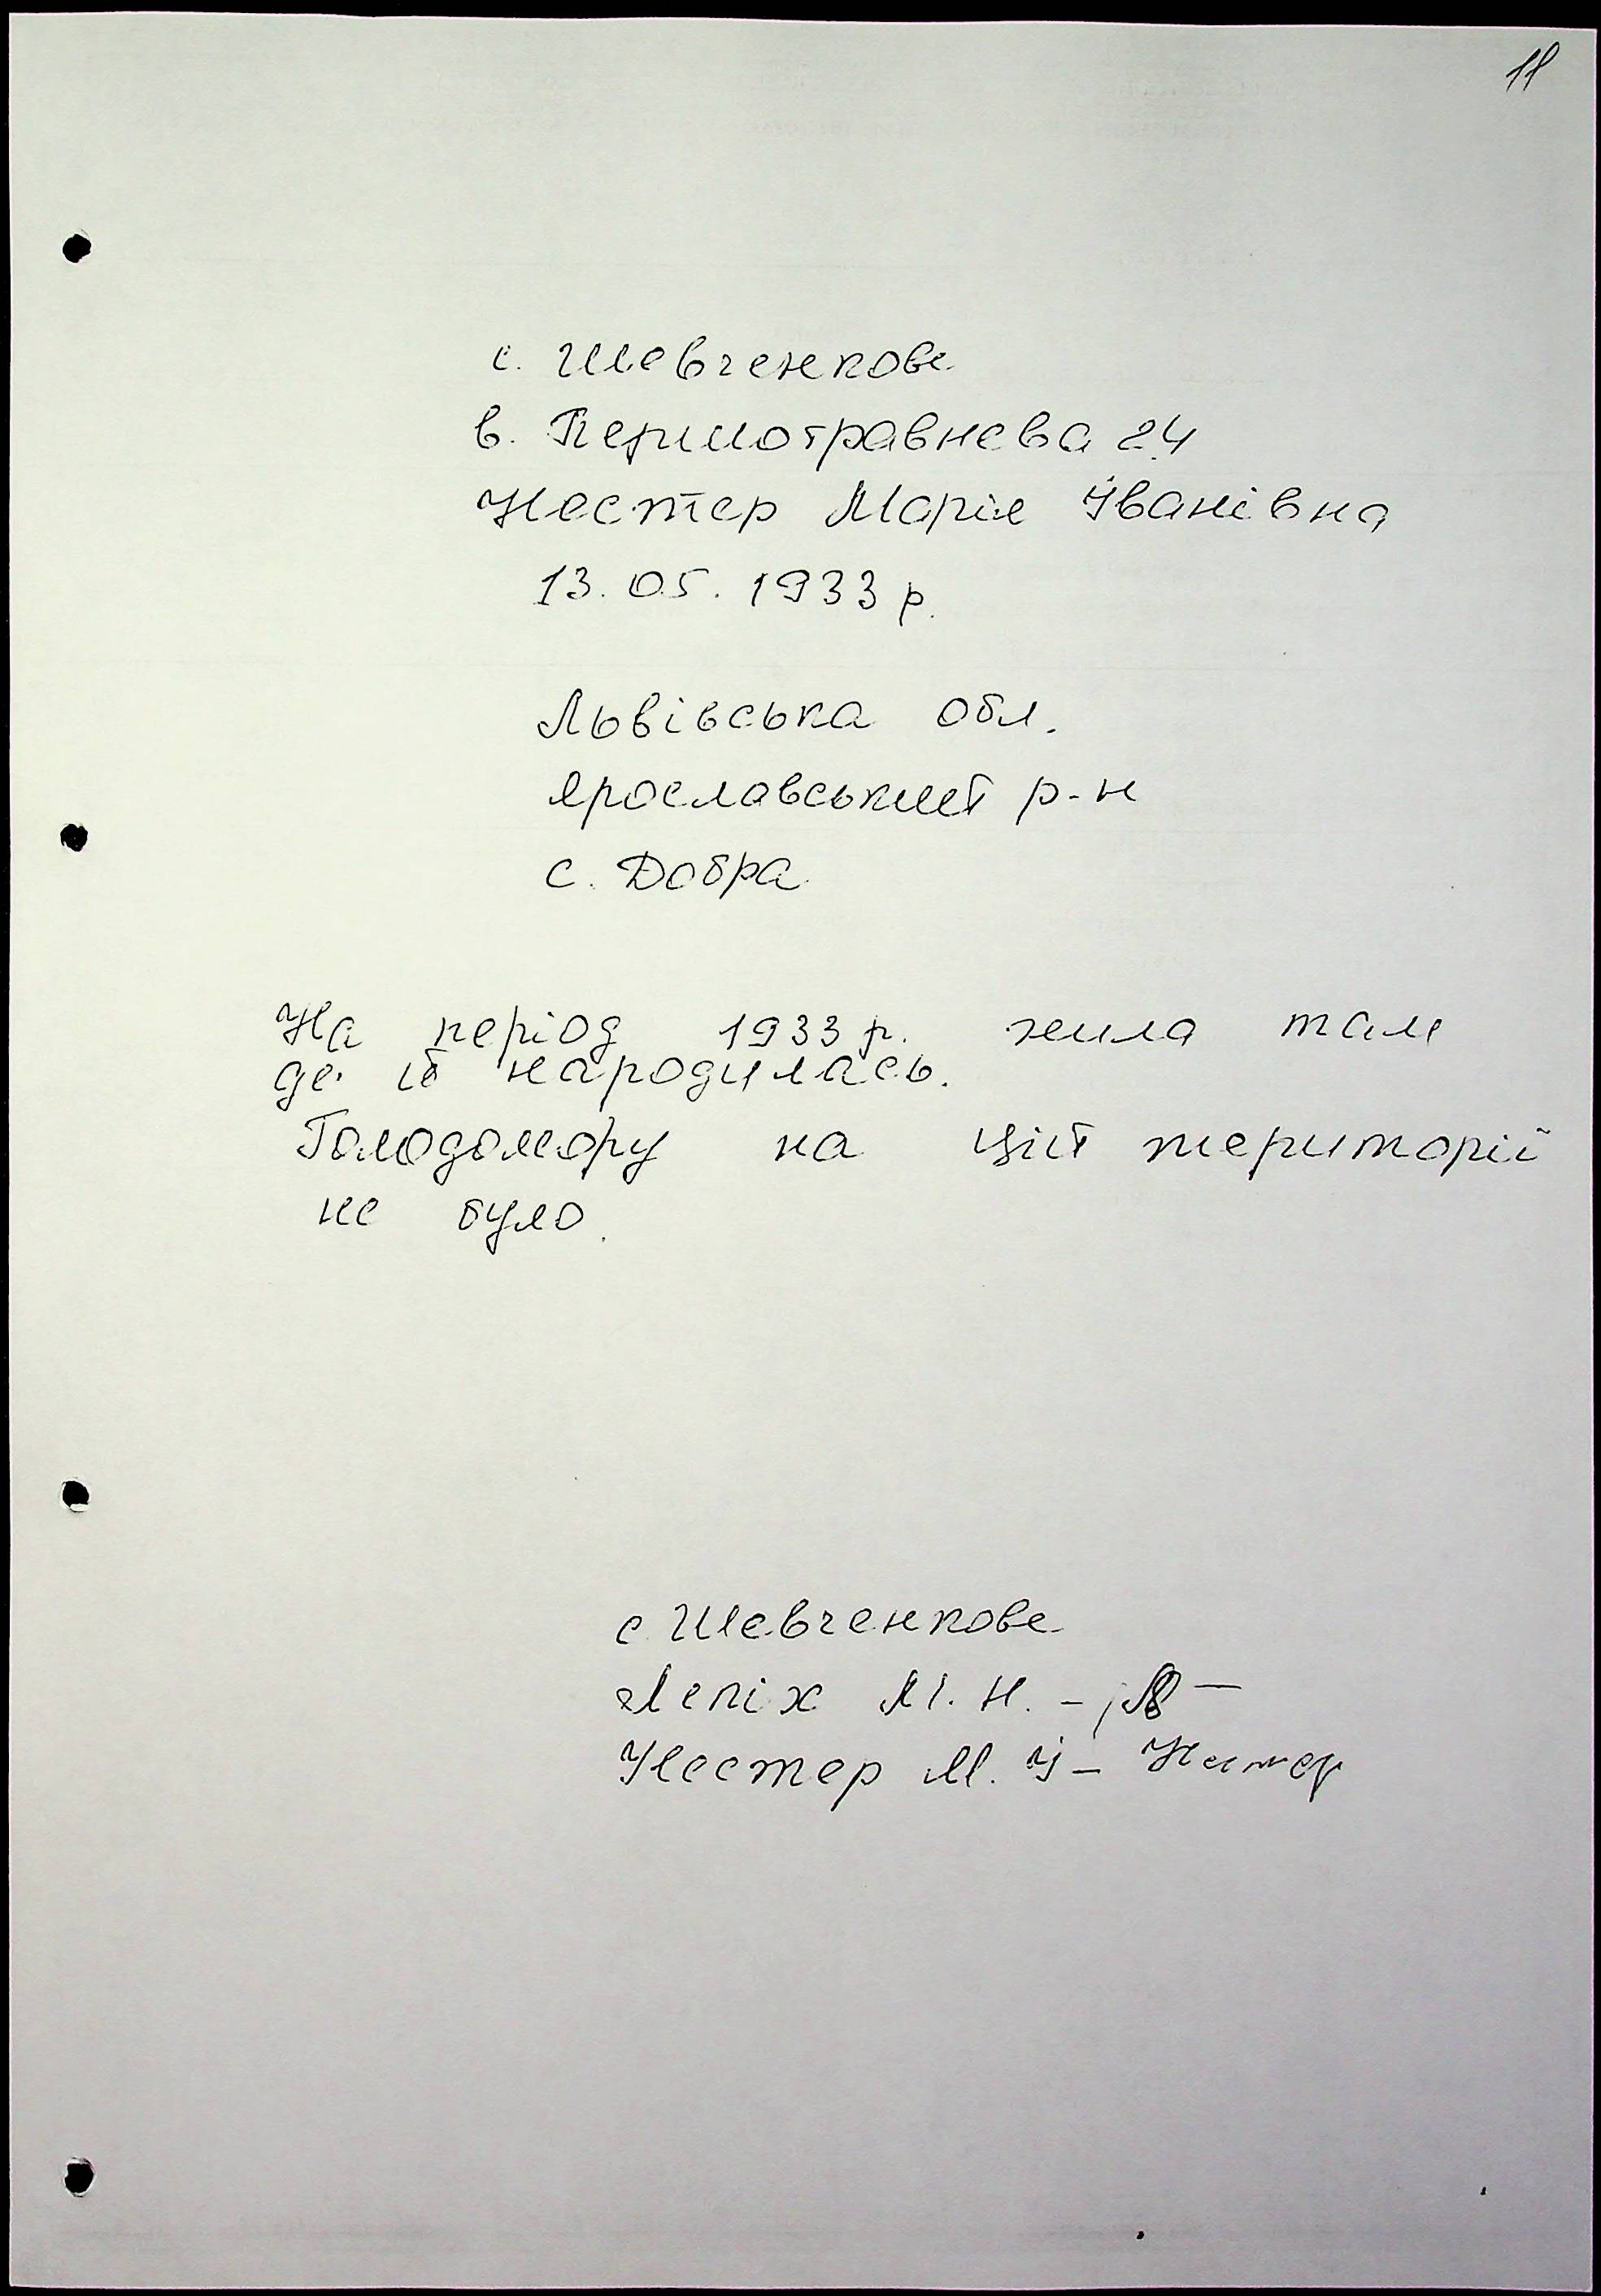 11
с. Шевченкове
в. Першотравнева 24
Нестер Марія Іванівна
13.05.1933 р.
Львівська обл.
Ярославський р-н
с. Добра
На період 1933 р. жила там
де й народилась.
Голодомору на цій території
не було.
с. Шевченкове
Лепіх М. Н. -
Нестер М. І - Нестер